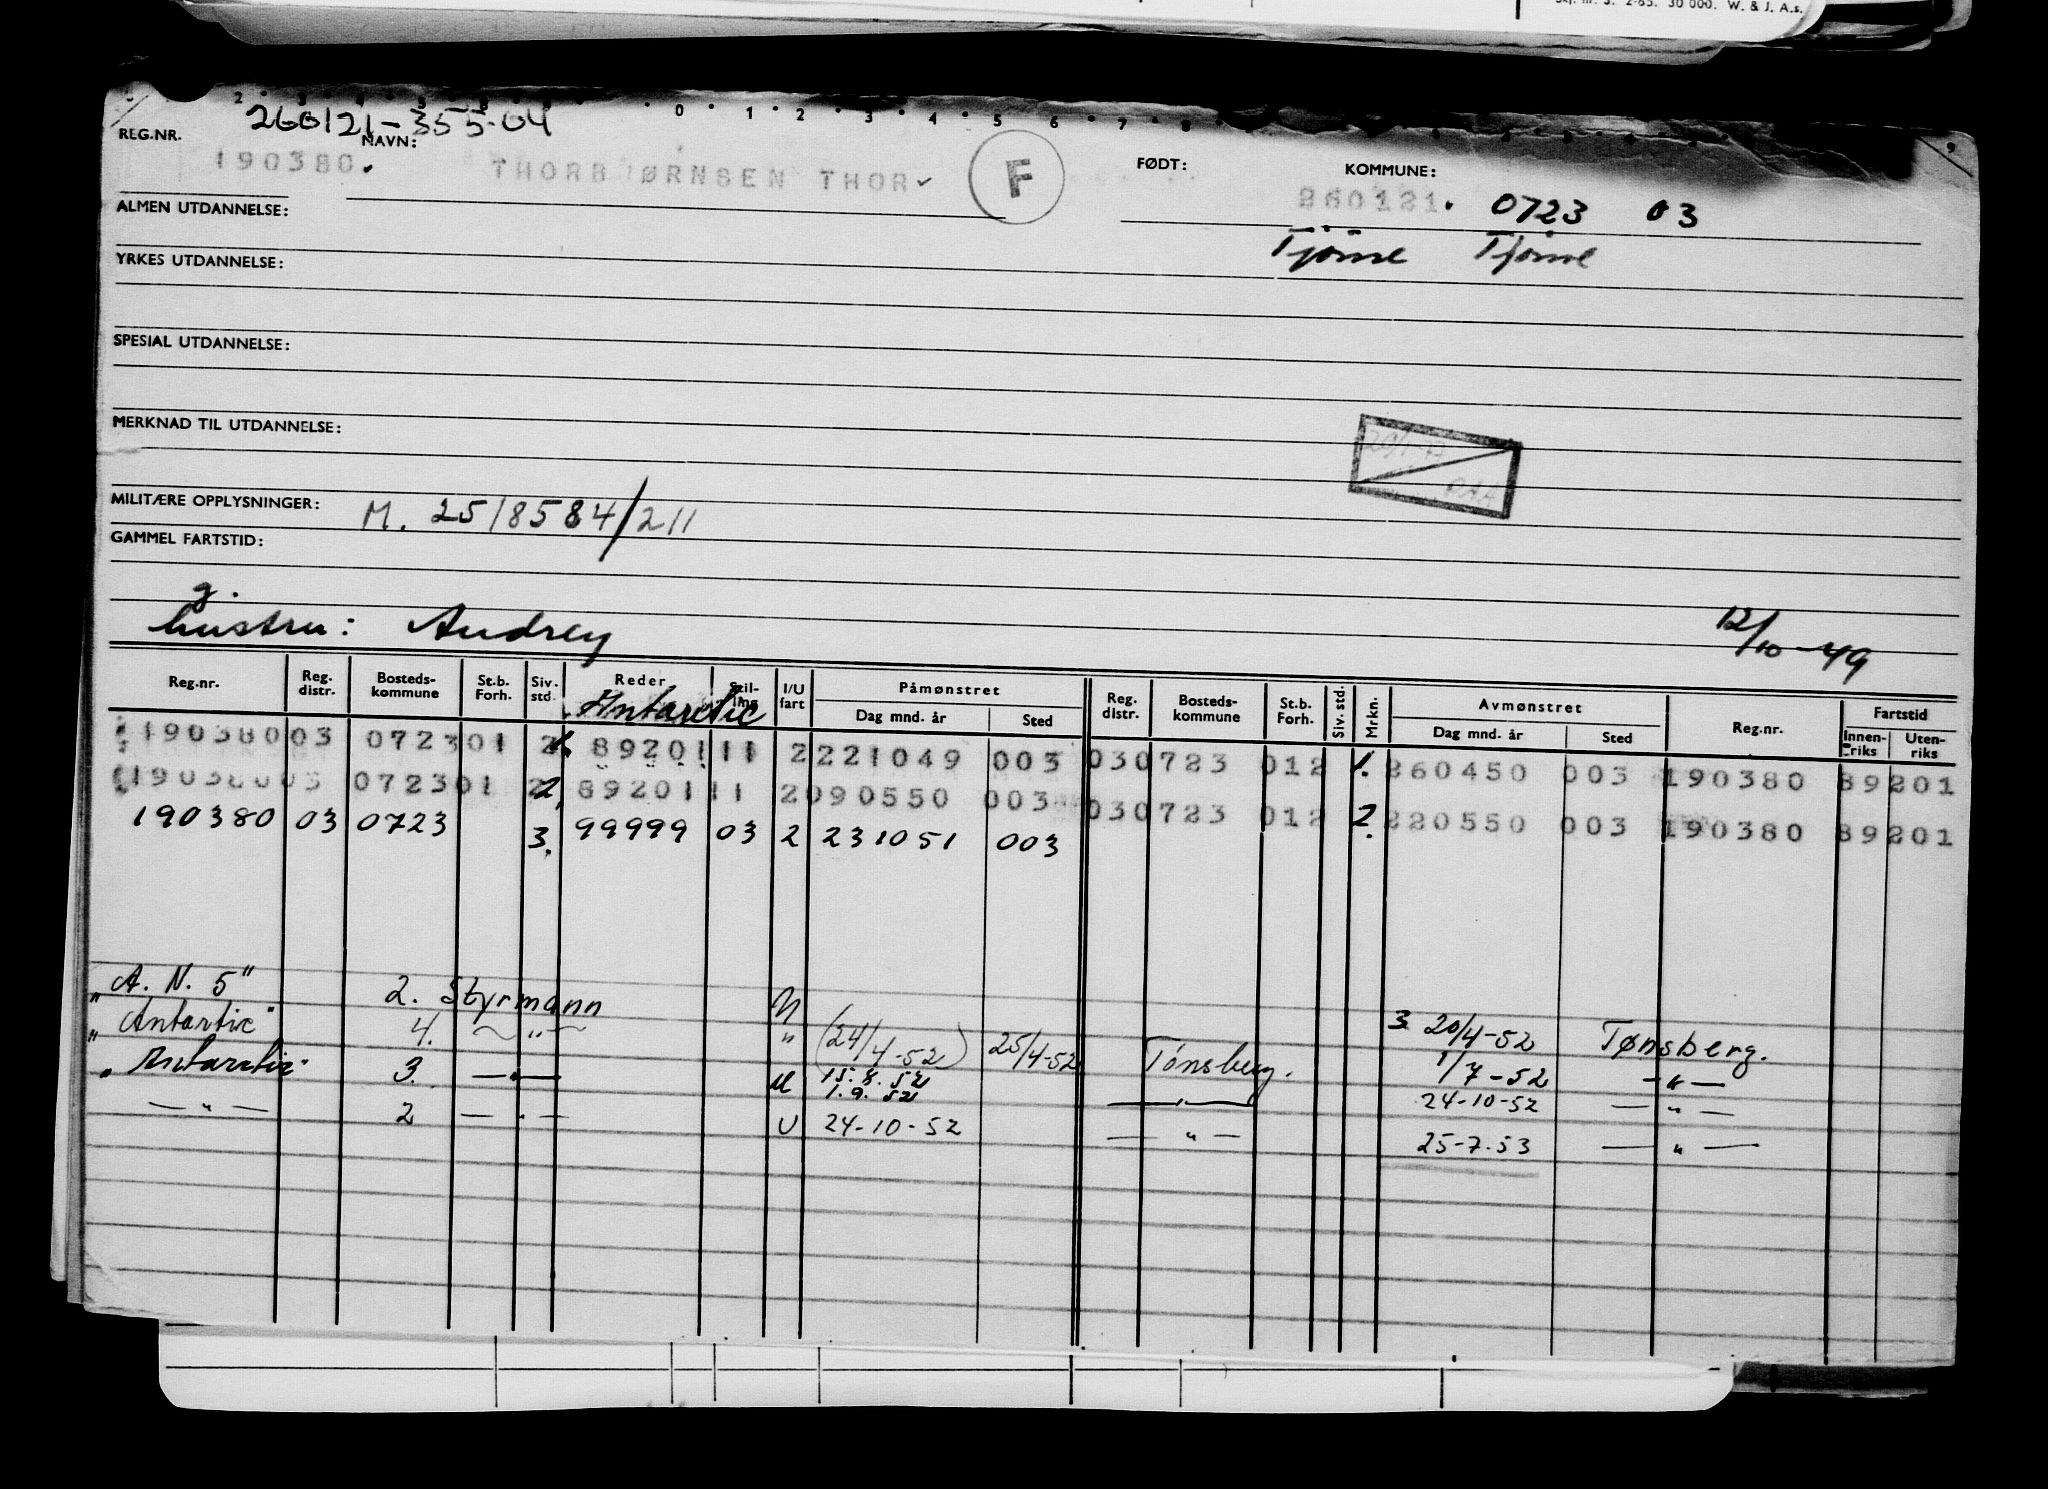 Skj. nr. 3. 2-65. 30 000. W. & J. A.s.
2 3 4 5 6 8 0 1 2 3 4 5 6 7 8 9
260121-355-04
REG.NR. NAVN: FØDT: KOMMUNE:
190380. THORBJØRNSEN THOR F 260121. 0723 03
ALMEN UTDANNELSE:
Tjöme Tjöme
YRKES UTDANNELSE:
SPESIAL UTDANNELSE:
MERKNAD TIL UTDANNELSE:
MILITÆRE OPPLYSNINGER: M. 2518584/211
GAMMEL FARTSTID:
g.
hustru: Audrey 12/10-49
Reg.nr. Reg. distr. Bosteds-kommune St.b. Forh. Siv. std. Reder Stil-ling I/U fart Påmønstret Reg. distr. Bosteds-kommune St.b. Forh. Siv. std. Mrkn. Avmønstret Reg.nr. Fartstid
Dag mnd. år Sted Dag mnd. år Sted Innen-riks Uten-riks
Antarctic
190380 03 0723 01 2 1. 89201 11 2 221049 003 03 0723 01 2 1. 260450 003 190380 89201
190380 03 0723 01 2 2. 89201 11 2 090550 003 03 0723 01 2 2. 220550 003 190380 89201
190380 03 0723 3. 99999 03 2 231051 003
"A. N. 5" 2. Styrmann U 3. 20/4-52 Tønsberg.
"Antartic" 4. ~ " ~ " (24/4-52) 25/4-52 Tönsberg. 1/7-52 -"-
"Antarctic" 3. -"- U 15.8.52 1.9.52 -"- 24-10-52 -"-
-"- 2 -"- U 24-10-52 -"- 25-7.53 -"-